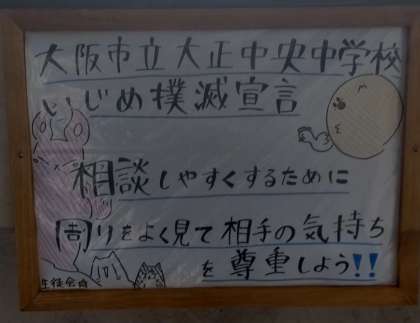 大阪市立大正中央中学校
いじめ撲滅宣言
相談しやすくするために
周りをよく見て相手の気持ち
を尊重しよう!!
生徒会